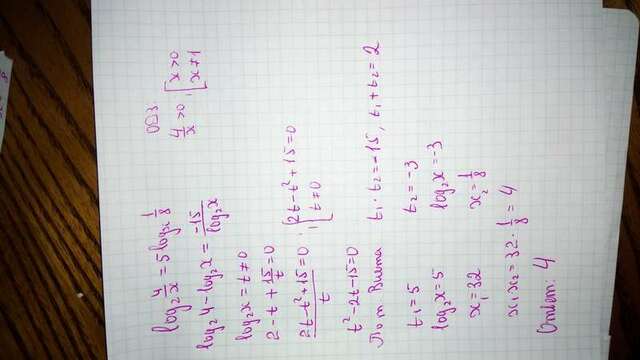 log₂ 4/x = 5 logₓ 1/8
ОДЗ.
4/x > 0, [x > 0
x ≠ 1
log₂ 4 - log₂ x = -15/log₂ x
log₂ x = t ≠ 0
2 - t + 15/t = 0
(2t - t² + 15 = 0)/t ; {2t - t² + 15 = 0
t ≠ 0
t² - 2t - 15 = 0
По т. Виета t₁ · t₂ = -15, t₁ + t₂ = 2
t₁ = 5 t₂ = -3
log₂ x = 5 log₂ x = -3
x₁ = 32 x₂ = 1/8
x₁ x₂ = 32 · 1/8 = 4
Ответ: 4